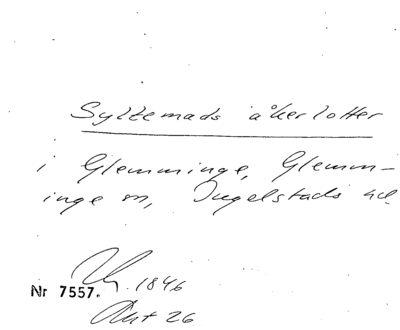 Syltemads åkerlotter
i Glemminge, Glemm-
inge sn, Ingelstads hd
1846
Nr 7557.
Akt 26